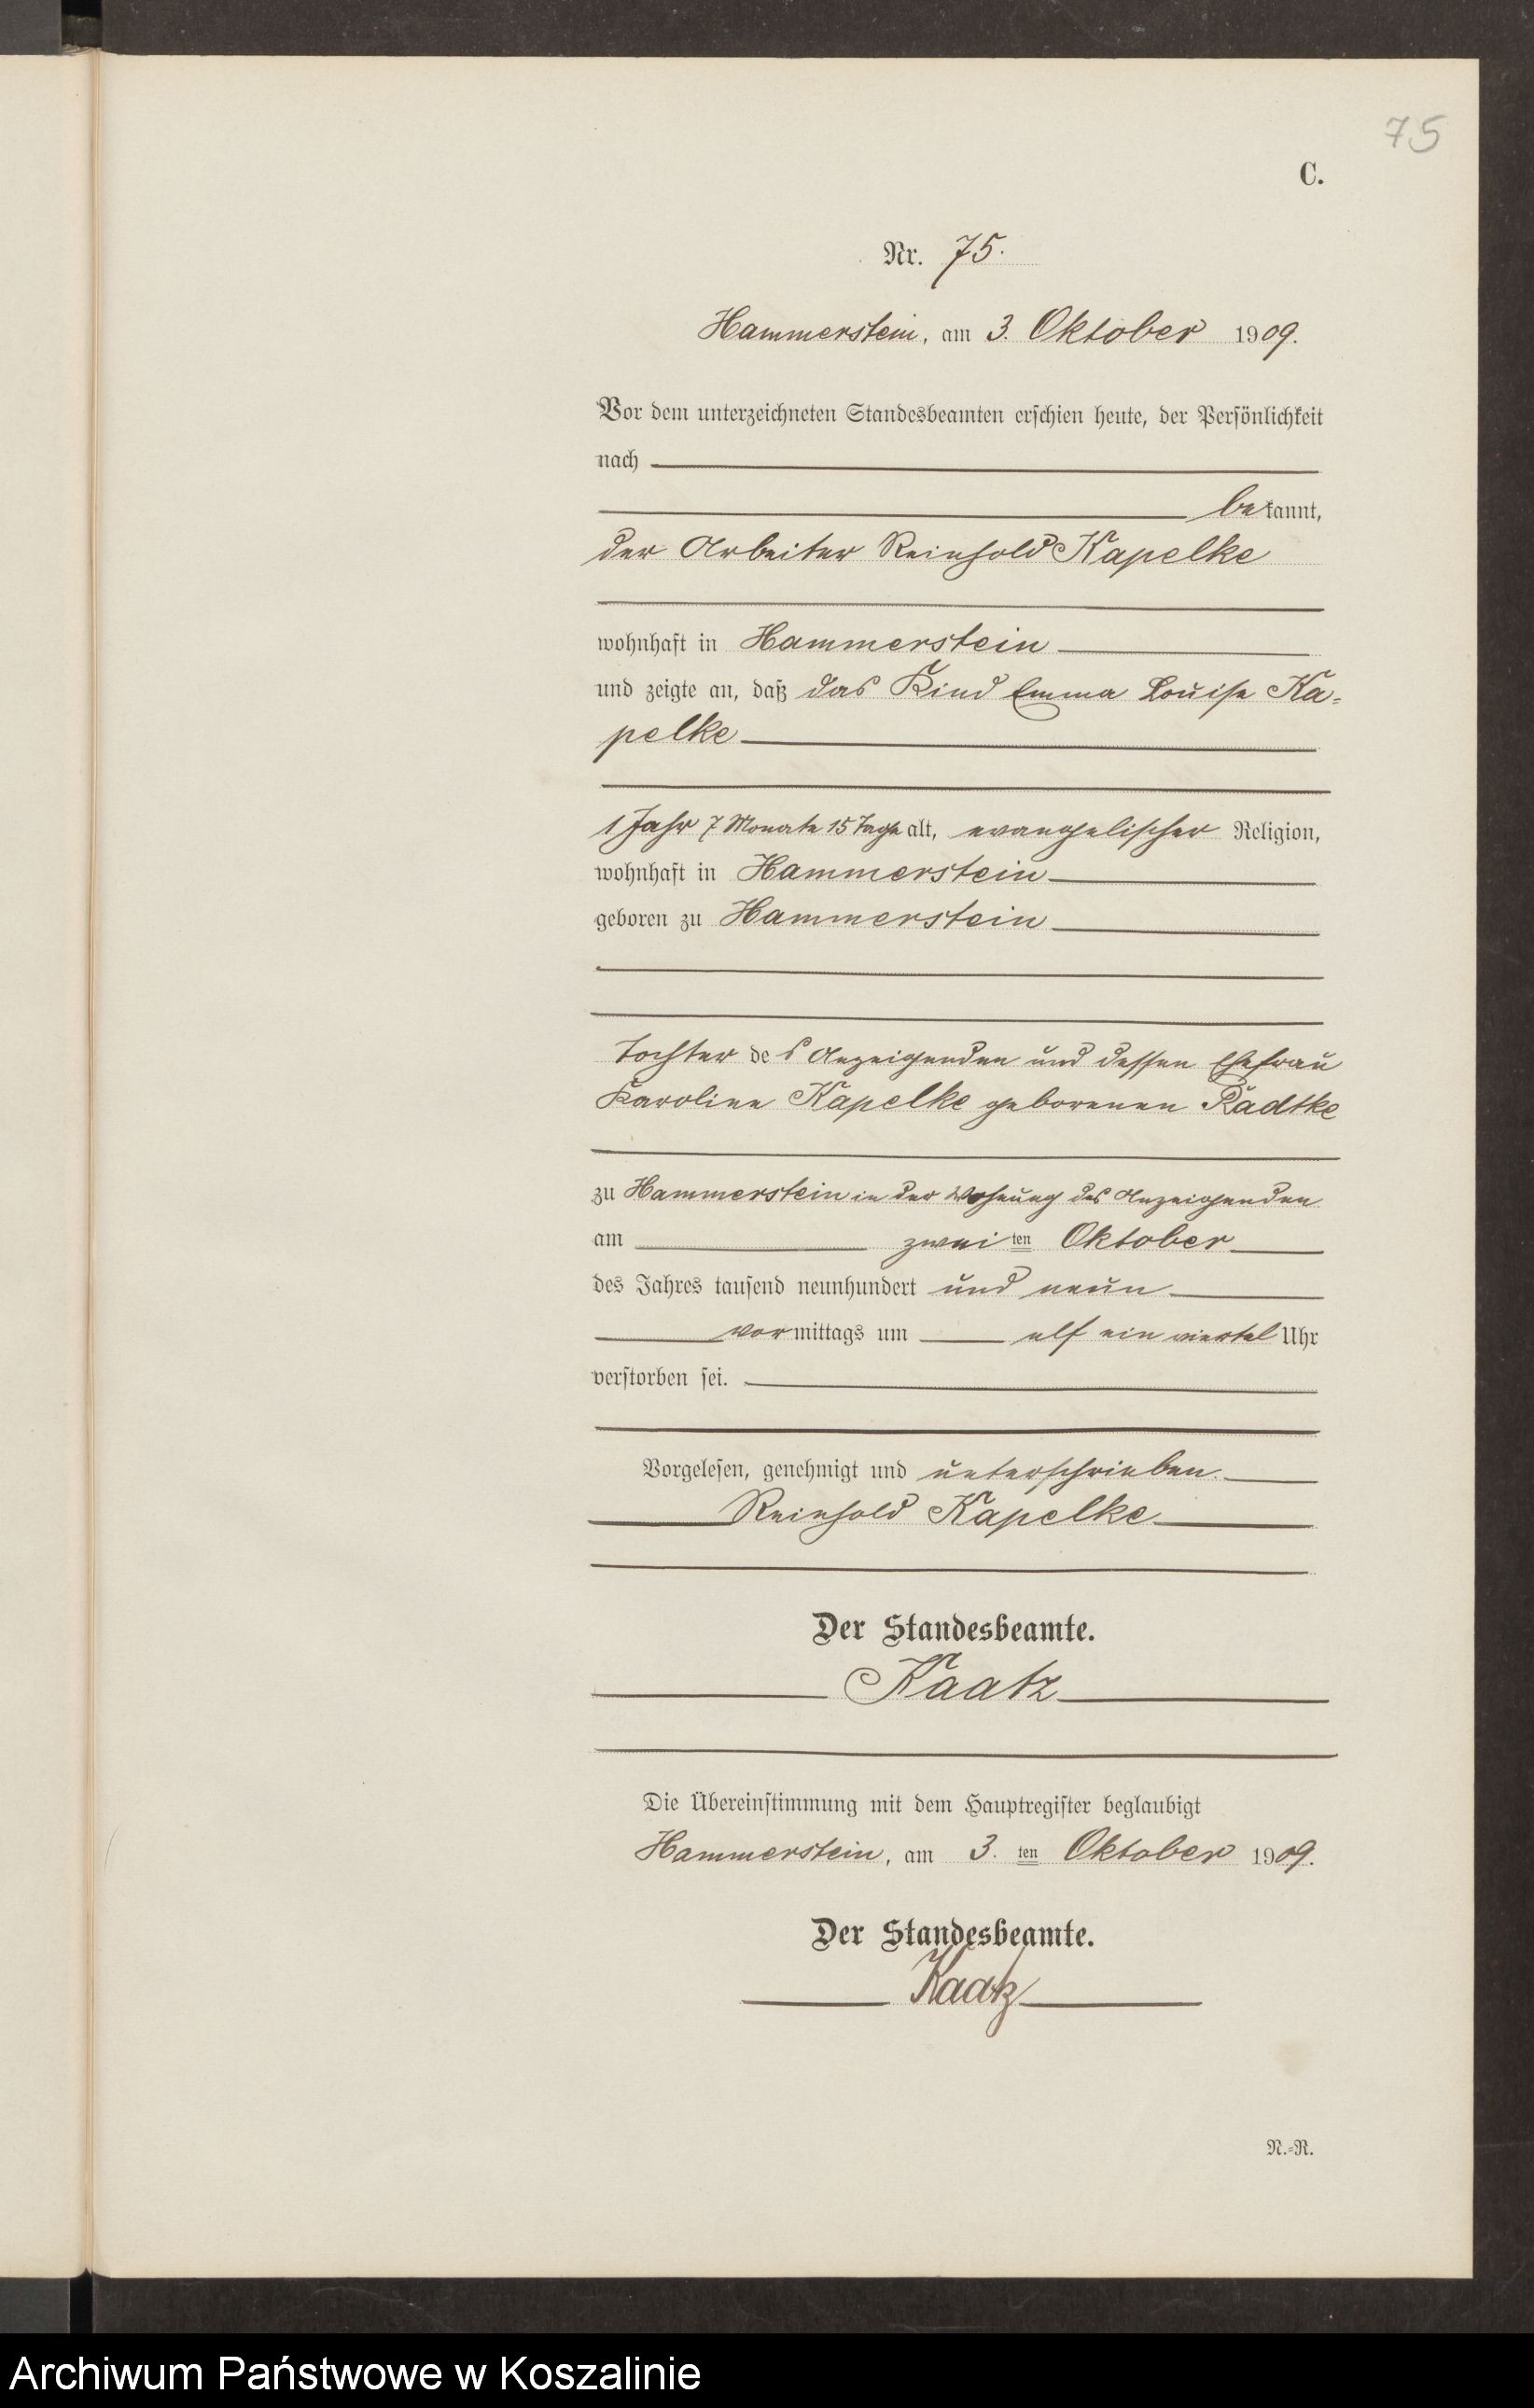 75
C.
Nr. 75.
Hammerstein, am 3. Oktober 1909.
Vor dem unterzeichneten Standesbeamten erschien heute, der Persönlichkeit
nach
bekannt,
der Arbeiter Reinhold Kapelke
wohnhaft in Hammerstein
und zeigte an, daß das Kind Emma Louise Ka-
pelke
1 Jahr 7 Monate 15 Tage alt, evangelischer Religion,
wohnhaft in Hammerstein
geboren zu Hammerstein
Tochter des Anzeigenden und dessen Ehefrau
Karoline Kapelke geborenen Radtke
zu Hammerstein in der Wohnung des Anzeigenden
am zweiten Oktober
des Jahres tausend neunhundert und neun
vormittags um elf ein viertel Uhr
verstorben sei.
Vorgelesen, genehmigt und unterschrieben.
Reinhold Kapelke
Der Standesbeamte.
Kaatz
Die Übereinstimmung mit dem Hauptregister beglaubigt
Hammerstein, am 3. ten Oktober 1909.
Der Standesbeamte.
Kaatz
N.-R.
Archiwum Państwowe w Koszalinie